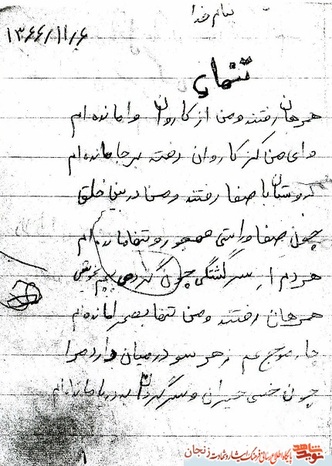 بنام خدا
۱۳۶۶/۱۱/۶
تنهای
همرهان رفتند و من از کاروان وامانده ام
وای من کز کاروان رفته بر جا مانده ام
دوستان با صفا رفتند و من در بین خلق
چون صفا و راستی مهجور و تنها مانده ام
هر دم از سرگشتگی چون گردمی پیچم بخویش
همرهان رفتند و من تنها بصحرا مانده ام
چار موج غم ز هر سو در میان دارد مرا
چون خسی حیران و سرگردان به دریا مانده ام
۱
نوید شاهد
پایگاه اطلاع رسانی فرهنگ ایثار و شهادت زنجان